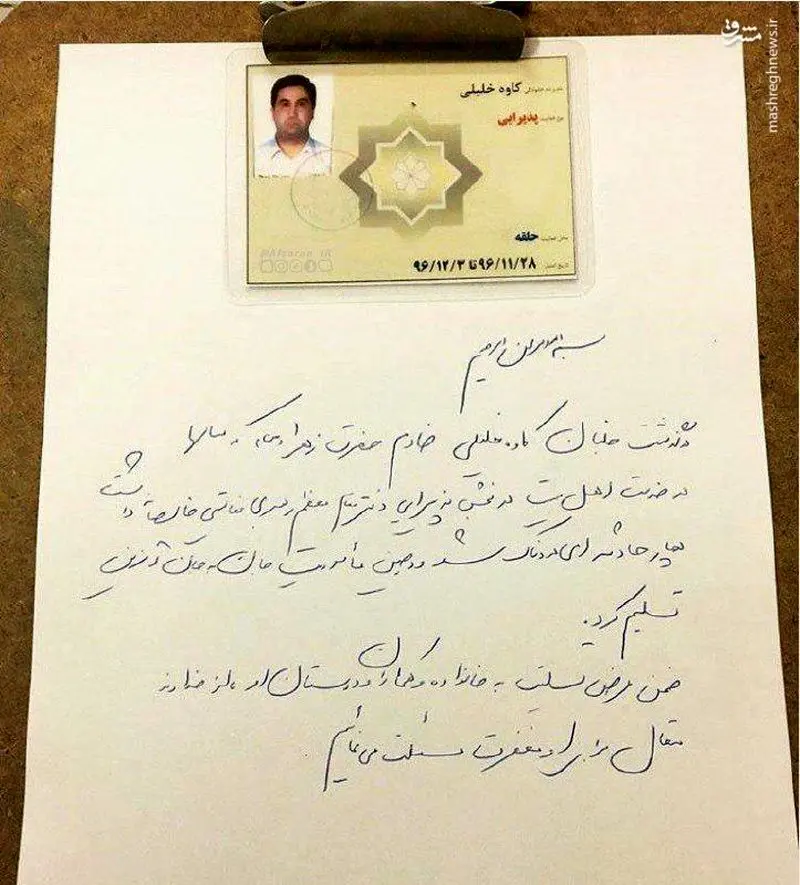 مشرق
mashreghnews.ir
نام و نام خانوادگی کاوه خلیلی
نوع فعالیت پذیرایی
محل فعالیت حلقه
تاریخ اعتبار ۹۶/۱۱/۲۸ تا ۹۶/۱۲/۳
بسم الله الرحمن الرحیم
درگذشت کاوه خلیلی خادم حضرت زهرا که سالها
در خدمت اهل بیت در بخش پذیرایی دفتر مقام معظم رهبری خالصانه داشت
دچار حادثه ای دردناک شد و در حین مأموریت جان به جان آفرین
تسلیم کرد.
ضمن عرض تسلیت به خانواده و همکاران و دوستان او از خداوند
متعال برای او مغفرت مسئلت می نمائیم